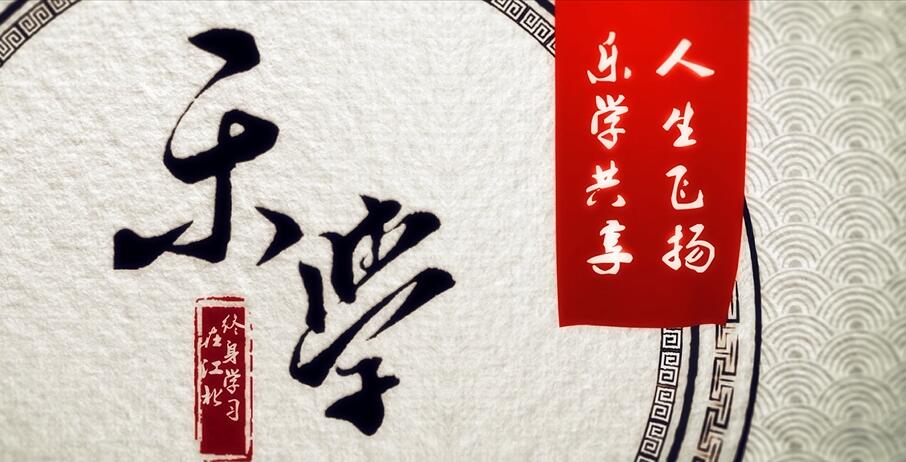 乐学
人生飞扬
乐学共享
终身学习
在江北